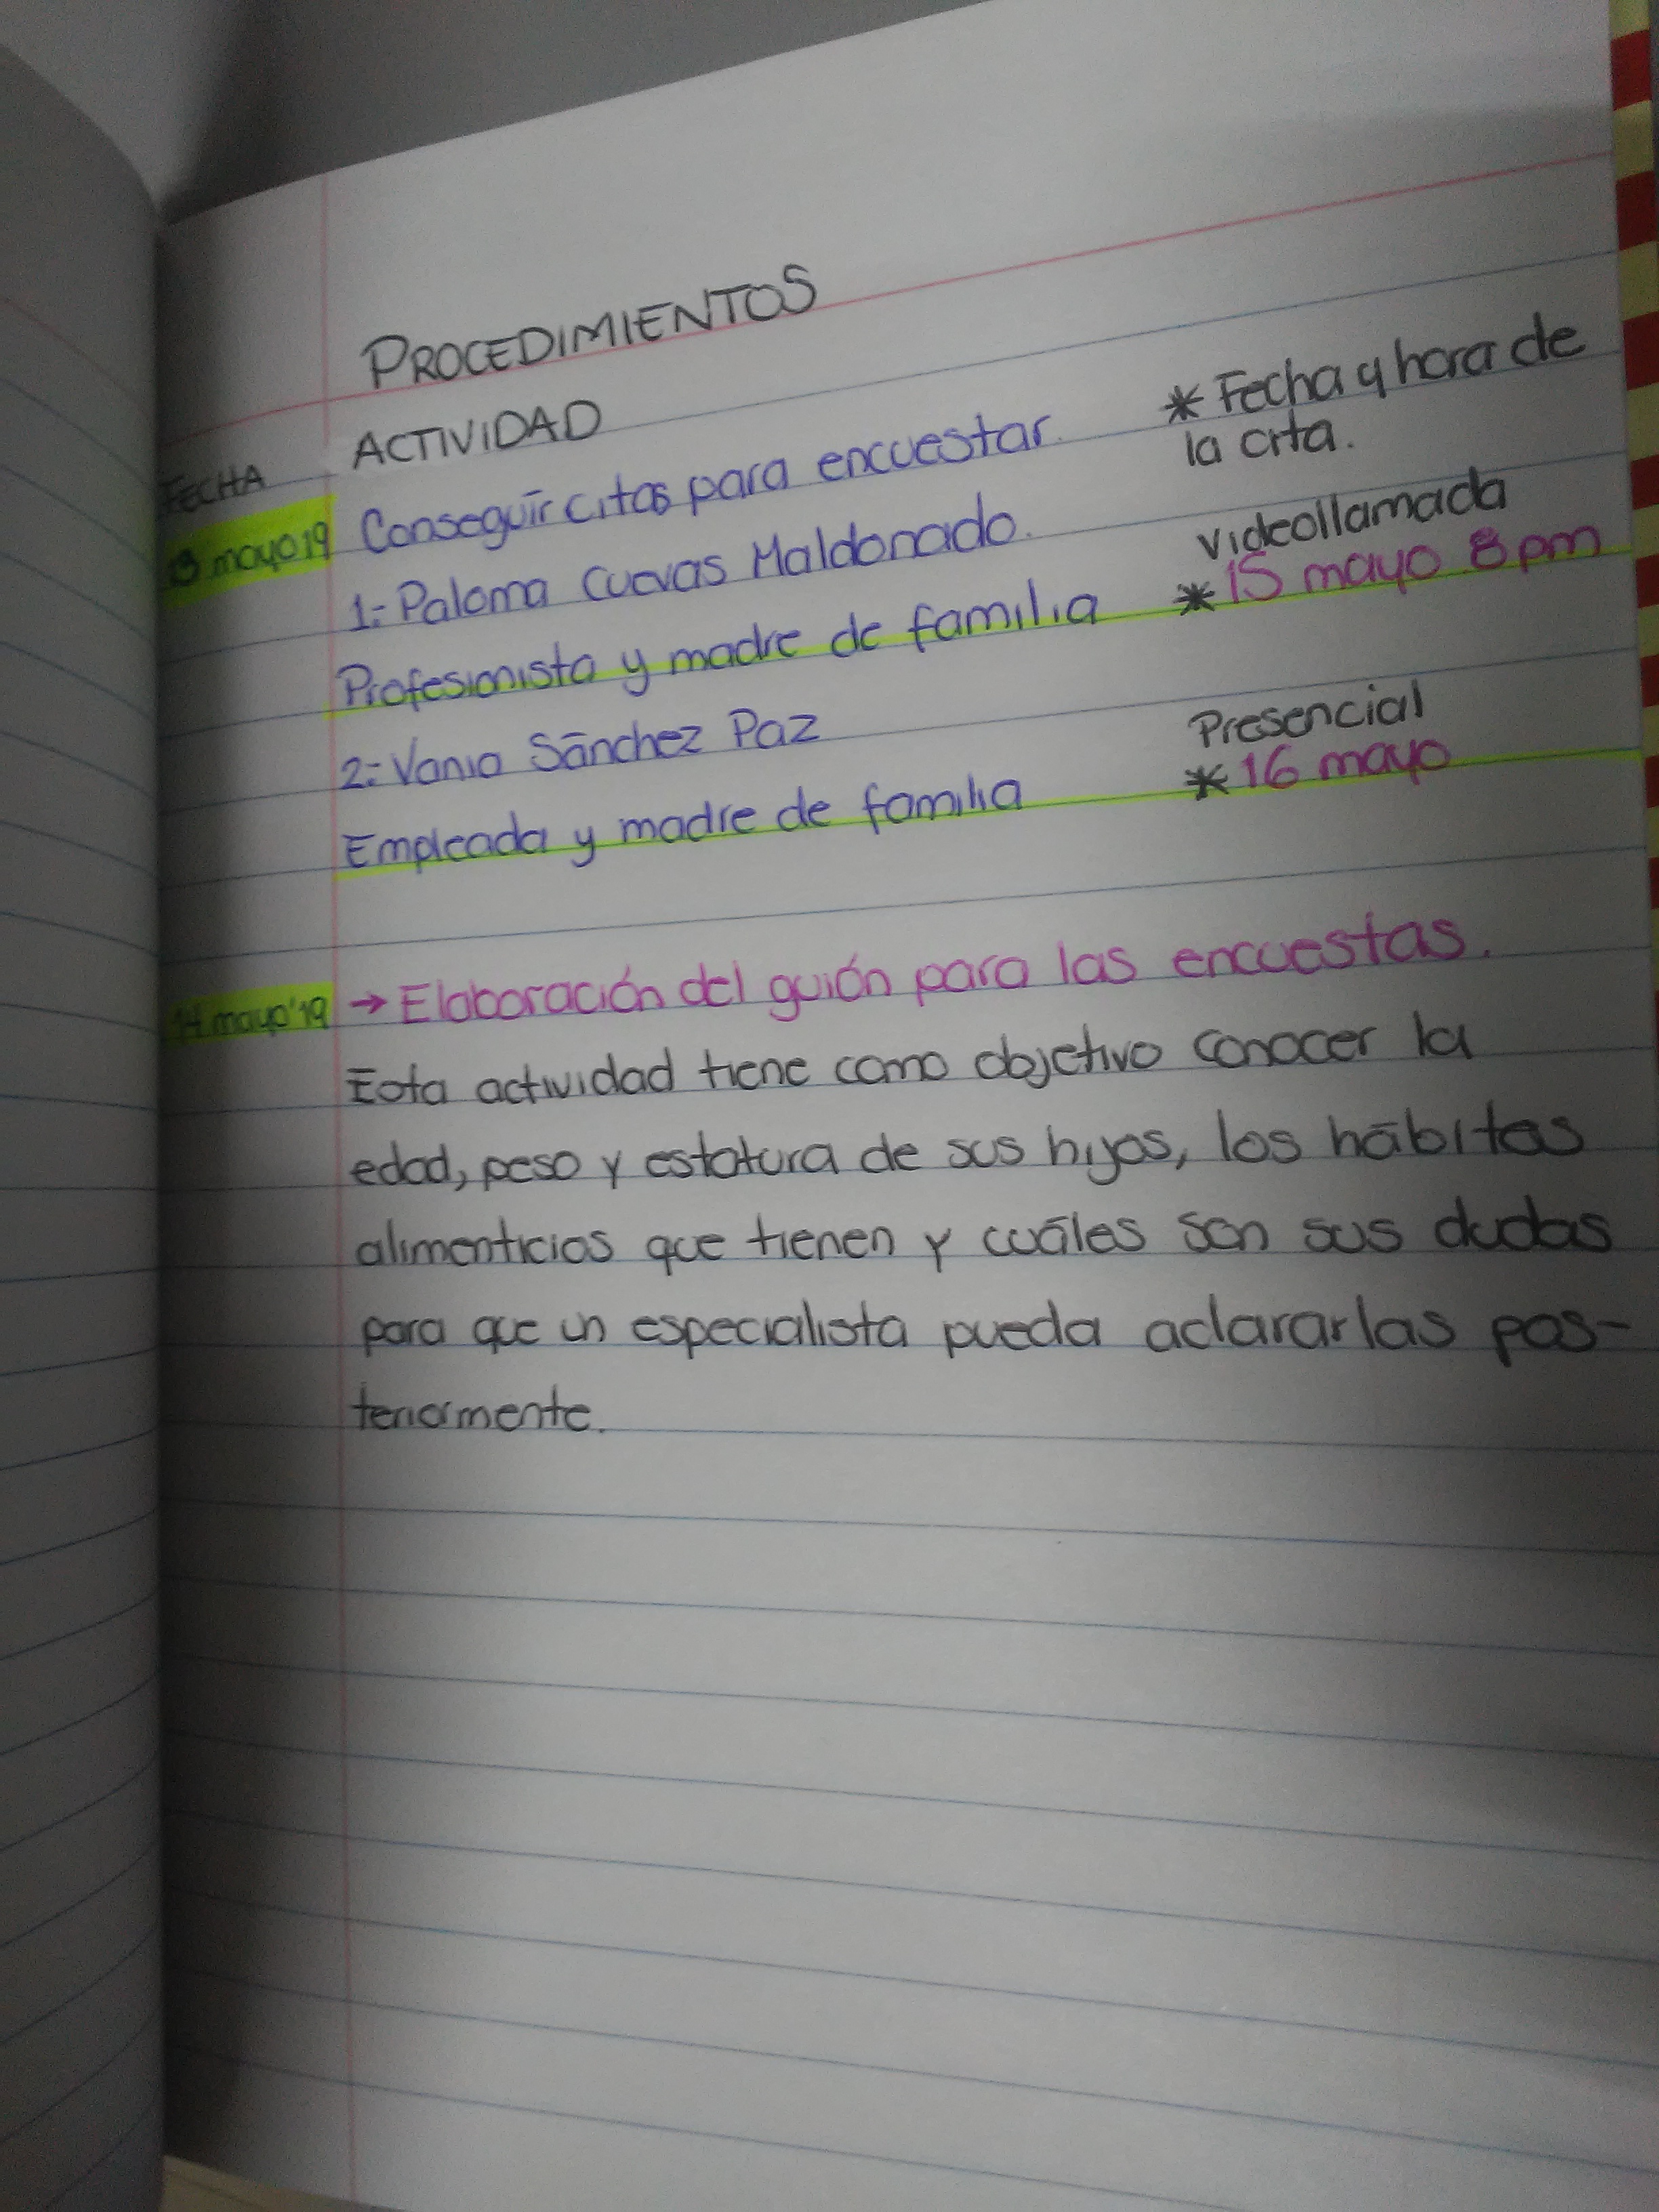 PROCEDIMIENTOS
FECHA ACTIVIDAD * Fecha y hora de
la cita.
mayo19 Conseguir citas para encuestar.
1.- Paloma Cuevas Maldonado. Videollamada
Profesionista y madre de familia * 15 mayo 8 pm
2.- Vania Sánchez Paz Presencial
Empleada y madre de familia * 16 mayo
14 mayo'19 → Elaboración del guión para las encuestas.
Esta actividad tiene como objetivo conocer la
edad, peso y estatura de sus hijos, los hábitos
alimenticios que tienen y cuáles son sus dudas
para que un especialista pueda aclararlas pos-
teriormente.